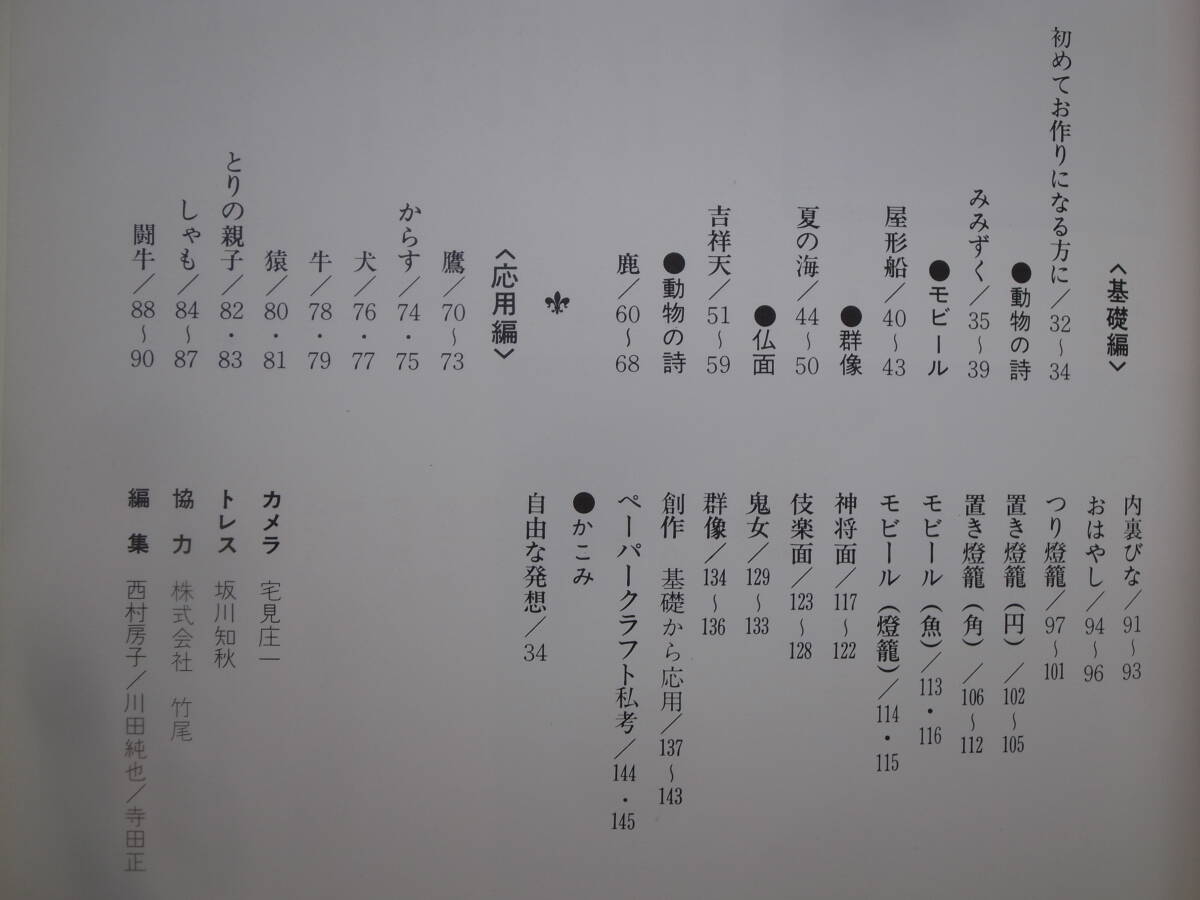 〈基礎編〉
初めてお作りになる方に／32〜34
●動物の詩
みみずく／35〜39
●モビール
屋形船／40〜43
●群像
夏の海／44〜50
●仏面
吉祥天／51〜59
●動物の詩
鹿／60〜68
〈応用編〉
鷹／70〜73
からす／74・75
犬／76・77
牛／78・79
猿／80・81
とりの親子／82・83
しゃも／84〜87
闘牛／88〜90
内裏びな／91〜93
おはやし／94〜96
つり燈籠／97〜101
置き燈籠（円）／102〜105
置き燈籠（角）／106〜112
モビール（魚）／113・116
モビール（燈籠）／114・115
神将面／117〜122
伎楽面／123〜128
鬼女／129〜133
群像／134〜136
創作　基礎から応用／137〜143
ペーパークラフト私考／144・145
●かこみ
自由な発想／34
カメラ　宅見庄一
トレス　坂川知秋
協力　株式会社 竹尾
編集　西村房子／川田純也／寺田正